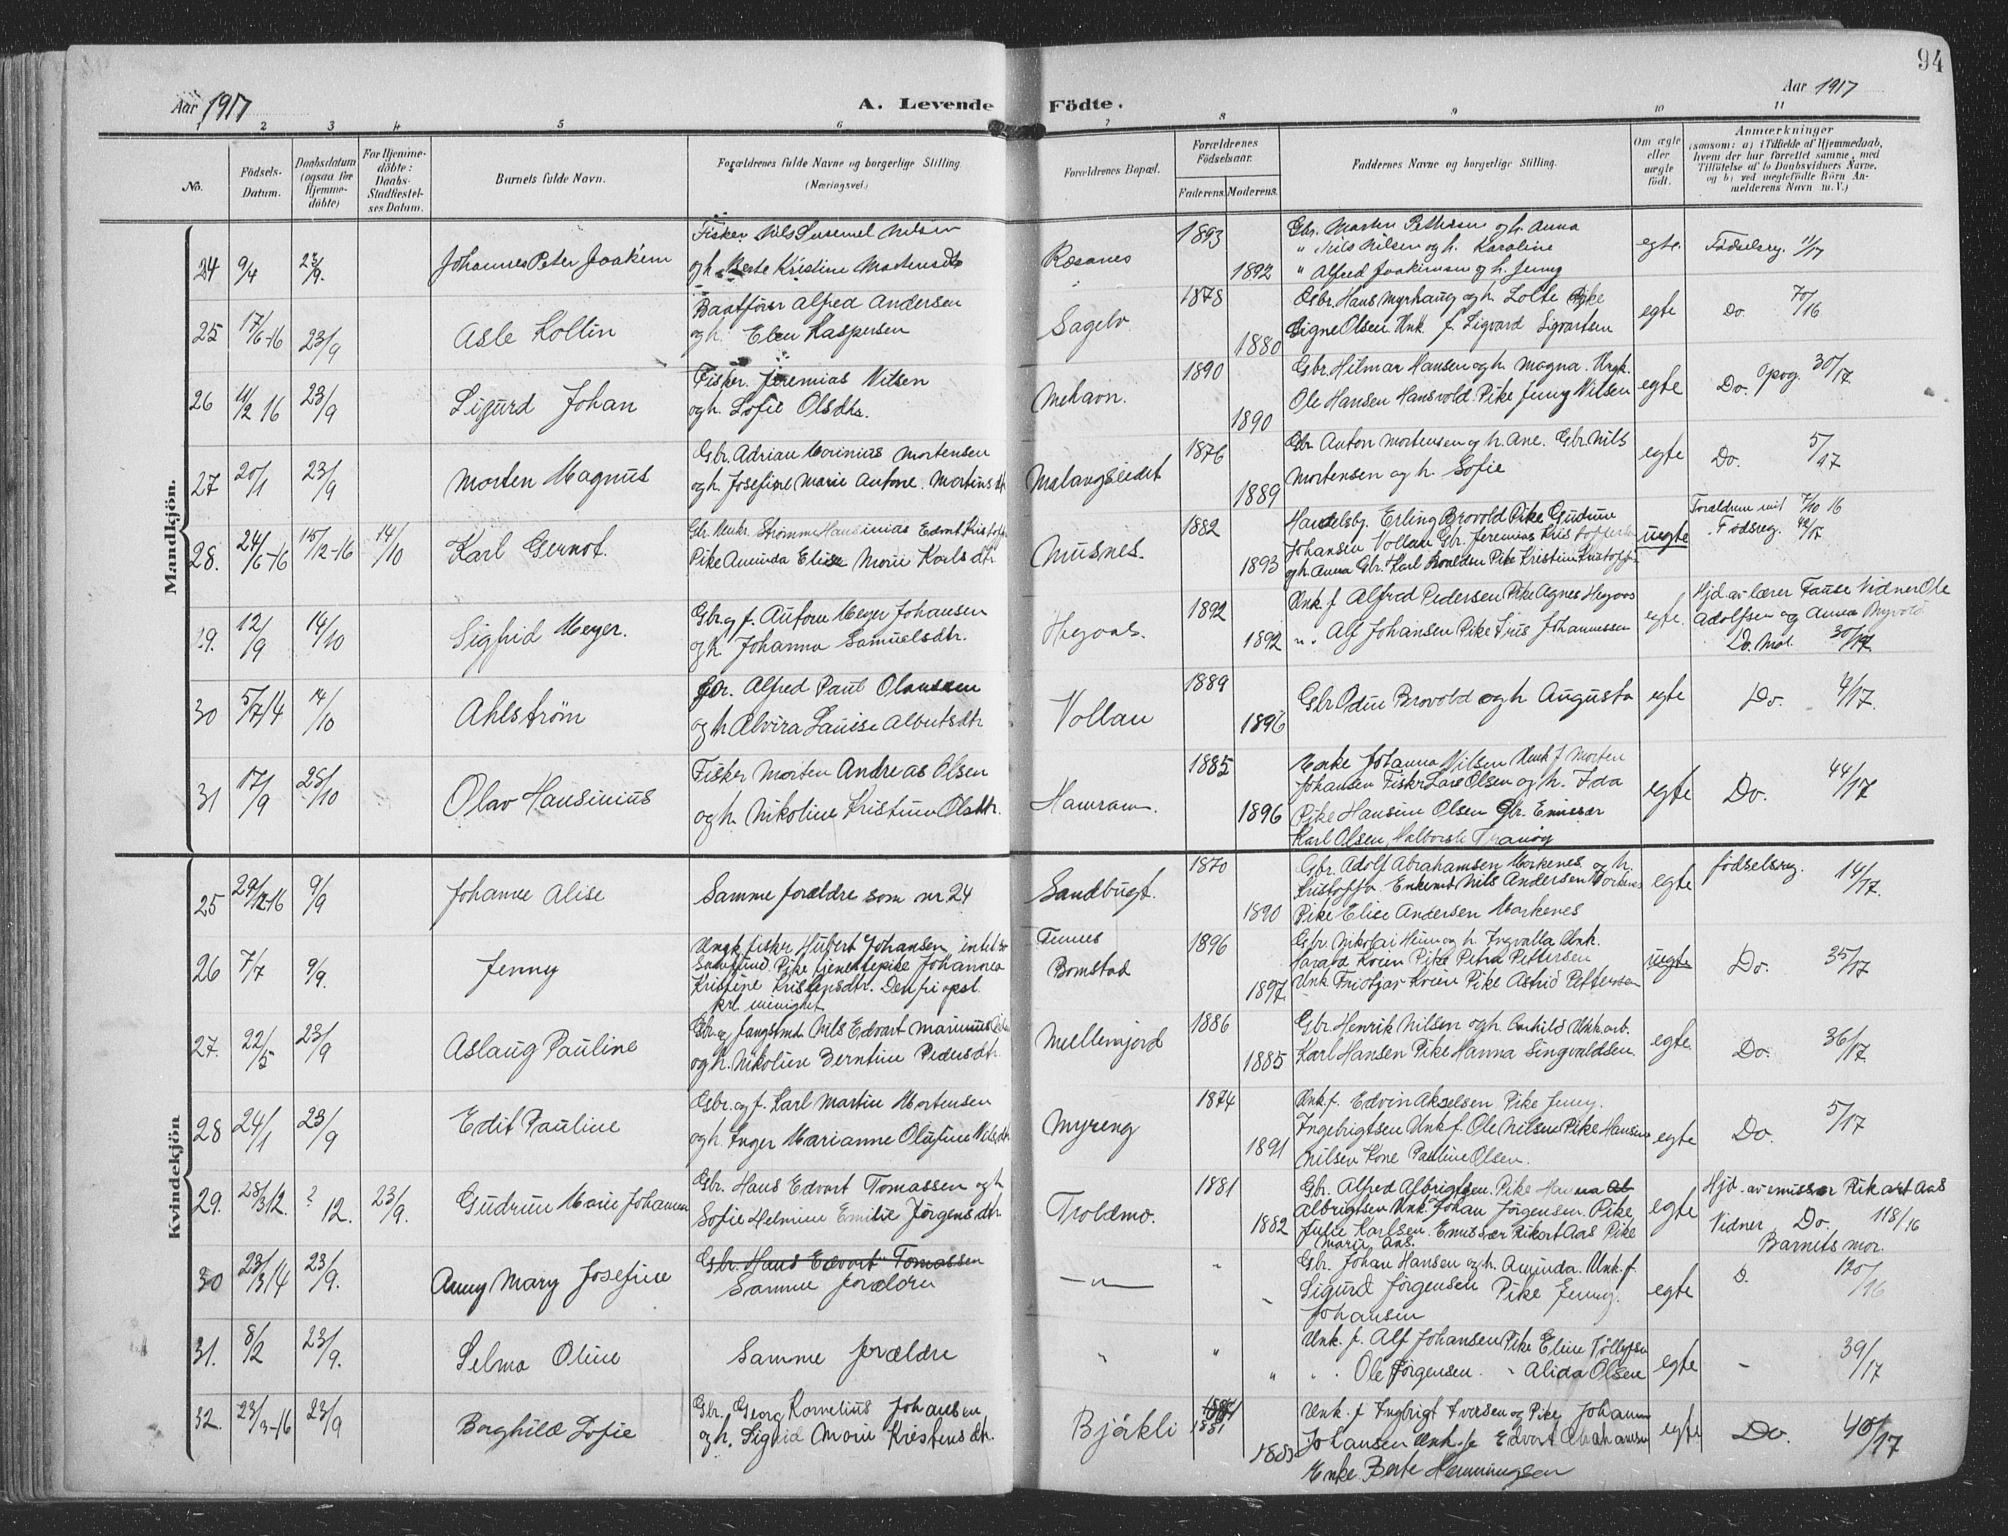 94
Aar 1917
A. Levende Födte.
Aar 1917
1 2 3 4 5 6 7 8 9 10 11
No.
Födsels-Datum.
Daabsdatum (ogsaa for Hjemme-döbte)
For Hjemme-döbte: Daabs-Stadfæstel-ses Datum.
Barnets fulde Navn.
Forældrenes fulde Navne og borgerlige Stilling.
(Næringsvei.)
Forældrenes Bopæl.
Forældrenes Födselsaar.
Faderens. Moderens.
Faddernes Navne og borgerlige Stilling.
Om ægte eller uægte födt.
Anmærkninger
(saasom: a) i Tilfælde af Hjemmedaab,
hvem der har forrettet samme, med
Tilföielse af to Daabsvidners Navne,
og b) ved uægtefödte Börn An-
melderens Navn m. V.)
Mandkjön.
24 9/4 23/9. Johannes Peter Joakim
Fisker Nils Nilsen
og h. Kristine Martensdtr
Ræsanes 1893 1892
Gbr. Martin Pettersen og h. Anna
" Nils Nilsen og h. Karoline
" Alfred Joakimsen og h. Jenny
egte. Fødselsreg. 11/17
25 17/6-16 23/9 Asle Kollin
Baatfører Alfred Andersen
og h. Elen Kaspersen
1878 1880
Gbr. Hans Myrhaug og h. Lotte Pike
Signe Olsen Unk. f. Sigvard Sigvartsen
egte Do. 70/16
26 11/12 16 23/9 Sigurd Johan
Fisker. Jeremias Nilsen
og h. Sofie Olsdtr.
Mehavn. 1890 1890
Gbr. Hilmar Hansen og h. Magna.
Ole Hansen Hansvold. Pike Jenny Nilsen
egte Do. 30/17
27 20/1 23/9 Morten Magnus
Gbr. Adrian Marinius Mortensen
og h. Josefine Marie Antone. Mortensdtr
Malangseidet 1876 1889
Gbr. Anton Mortensen og h. Ane. Gbr. Nils
Mortensen og h. Sofie
egte Do. 5/17
28. 24/6-16 15/12-16 14/10 Karl Gernot.
Pike Aminda Elise Marie Karlsdtr.
Musnes. 1882 1893
Handelsbg. Erling Brovold Pike Gudrun
Johansen Vollan Gbr. Jeremias Kristoffersen
og h. Anna Gbr. Karl Pike Kristine
uegte Forældrene 7/10 16
Fødsreg. 42/17
29. 12/9 14/10 Sigfrid Meyer.
Gbr. og f. Antone Meyer Johansen
og h. Johanna Samuelsdtr.
1892 1892
Unk f Alfred Pedersen Pike Agnes
" . Alf Johansen Pike Johannessen
egte. Hjd. av lærer Vidner Ole
Adolfsen og Anna
Do. 30/17.
30 5/7 14 14/10 Ahlstrøm
Gbr. Alfred Paul Olaussen
og h Alvira Lauise Albertsdtr
Vollan 1889 1896
Gbr Odin Brovold og h Augusta
egte Do. 9/17.
31 17/9 28/10 Olav Hansinius
Fisker Morten Andreas Olsen
og h. Nikoline Kristine Olsdtr.
1885 1896
Enke Johanna Nilsen Unk f Morten
Johansen Fisker Lars Olsen og h. Ida
Pike Hansine Olsen Gbr. Emissær
Karl Olsen,
egte Do. 44/17
Kvindekjön
25 29/12-16 9/9 Johanne Alise
Samme forældre som nr 24
Sandbugt. 1870 1890
Gbr. Adolf Abrahamsen Markenes og h.
Enkemt Nils Andersen Markenes
Pike Elise Andersen Markenes
egte Födselsreg. 14/17.
26 7/7 9/9. Jenny
Ungk fisker Hubert Johansen,
Pike tjenestepike Johanna
Kristine Kristensdtr.
Bomstad 1896 1897.
Gbr. Nikolai Heim og h. Ingvalla Unk.
Pike Petra Pettersen
Unk Fridtjar Pike Astrid Pettersen
uegte Do. 35/17
27. 22/5 23/9 Aslaug Pauline
Gbr. og fangsmt Nils Edvart Marinius
og h. Nikoline Berntine Pedersdtr.
Mellemjord 1886 1885
Gbr. Henrik Nilsen og h. Unk arb.
Karl Hansen Pike Hanna Singvaldsen
egte. Do. 36/17
28 24/1 23/9 Edit Pauline
Gbr. og f. Karl Martin Mortensen
og h. Inger Marianne Olufine Nilsdtr
Myreng 1874 1891
Unk f. Edvin Akselsen Pike Jenny.
Ingebrigtsen Unk f. Ole Nilsen Pike Hansine
Nilsen Kone Pauline Olsen.
egte Do. 5/17
29. 28/3 12. ? 12. 23/9. Gudrun Marie Johanna
Gbr. Hans Edvart Tomassen og h
Sofie Helmine Emilie Jörgensdtr.
Troldmo. 1881 1882
Gbr. Alfred Albrigtsen. Pike Hanna
Albrigtsen Unk Johan Jörgensen. Pike
Julie Karlsen. Emissær Rikart Aas Pike
Marie Aas.
egte Hjd. av emissær Rikart Aas
Vidner Do. 118/16
Barnets mor.
30 23/3 14 23/9. Anny Mary Josefine
Gbr. Hans Edvart Tomassen
Samme forældre
— " — "
Gbr. Johan Hansen og h. Aminda. Unk. f.
Sigurd Jörgensen Pike Jenny.
Johansen
egte D. 120/16
31. 8/2 23/9. Selma Oline
Samme forældre
" " "
Unk. f. Alf Johansen Pike Eline
" . Ole Jörgensen. " Alida Olsen
egte – 39/17
32. 23/3-16 23/9 Borghild Sofie
Gbr. Georg Kornelius Johansen
og h. Sigrid Marie Kristensdtr.
Bjørkli 1881 1883
Unk. f Ingbrigt Iversen og Pike Johanna
Johansen Unk. f. Edvart Abrahamsen
Enke Berte Henningsen
egte Do. 40/17